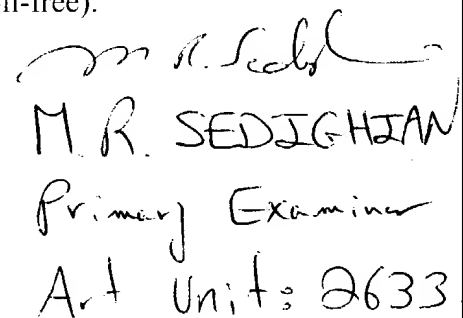 ll-free).
M. R. Sedigh
M. R. SEDIGHIAN
Primary Examiner
Art Unit: 2633